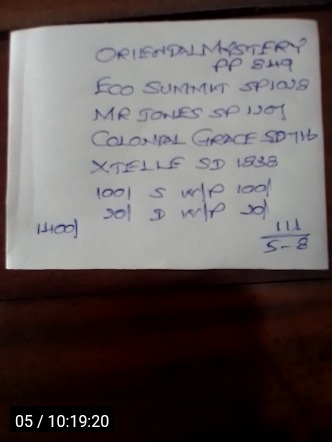 ORIENTAL MYSTERY
PP 849
ECO SUMMIT SP1028
MR JONES SP 1207
COLONIAL GRACE SD 716
XTELLE SD 1838
100/ S W/P 100/
20/ D W/P 20/
1400/
111
5-8
05 / 10:19:20